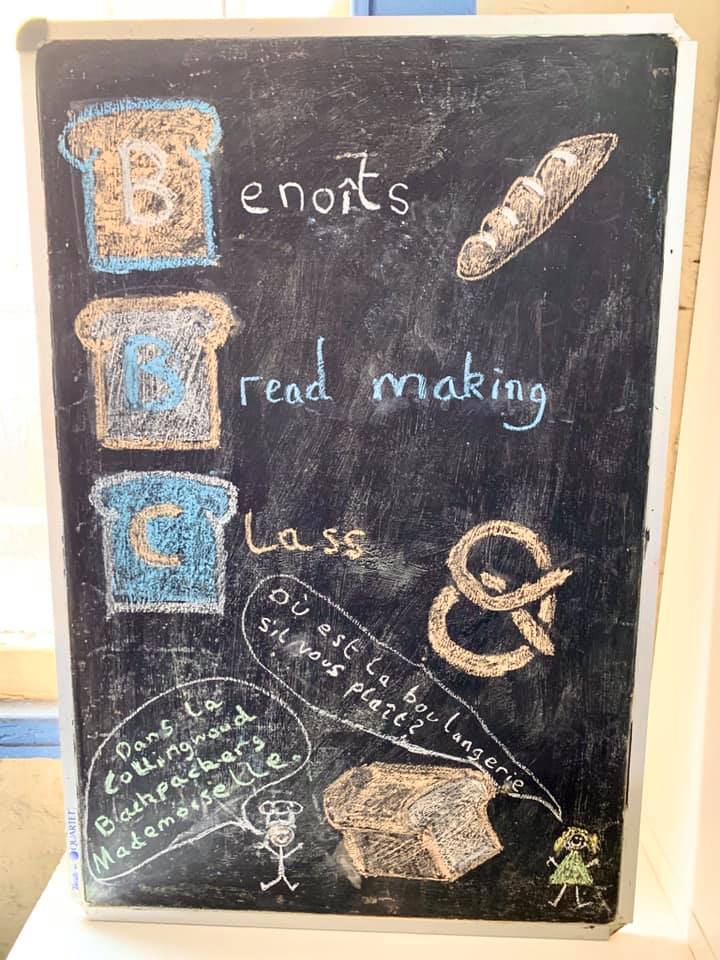 Benoîts
Bread making
Class
Où est la boulangerie
sil vous plaît?
Dans la
Collingwood
Backpackers
Mademoiselle.
QUARTET